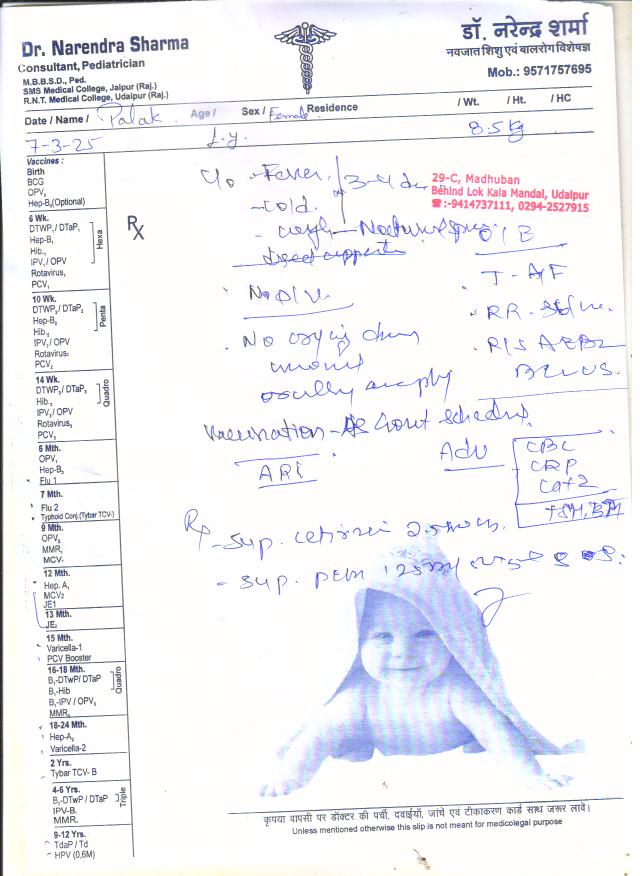 Dr. Narendra Sharma
Consultant, Pediatrician
M.B.B.S.D., Ped.
SMS Medical College, Jaipur (Raj.)
R.N.T. Medical College, Udaipur (Raj.)
डॉ. नरेन्द्र शर्मा
नवजात शिशु एवं बालरोग विशेषज्ञ
Mob.: 9571757695
Date / Name / Palak Age / Sex / Female Residence / Wt. / Ht. / HC
7-3-25 1.y. 8.5 kg
29-C, Madhuban
Behind Lok Kala Mandal, Udaipur
☎:-9414737111, 0294-2527915
Vaccines :
Birth
BCG
OPV₁
Hep-B₁(Optional)
6 Wk.
DTWP₁/ DTaP₁
Hep-B₁
Hib₁
IPV₁/ OPV
Rotavirus₁
PCV₁
Hexa
10 Wk.
DTWP₂/ DTaP₂
Hep-B₂
Hib₂
IPV₂/ OPV
Rotavirus₂
PCV₂
Penta
14 Wk.
DTWP₃/ DTaP₃
Hib₃
IPV₃/ OPV
Rotavirus₃
PCV₃
Quadro
6 Mth.
OPV₁
Hep-B₃
Flu 1
7 Mth.
Flu 2
Typhoid Conj.(Tybar TCV-)
9 Mth.
OPV₂
MMR₁
MCV₁
12 Mth.
Hep. A₁
MCV₂
JE1
13 Mth.
JE₂
15 Mth.
Varicella-1
PCV Booster
16-18 Mth.
B₁-DTwP/ DTaP
B₁-Hib
B₁-IPV / OPV₃
MMR₂
Quadro
18-24 Mth.
Hep-A₂
Varicella-2
2 Yrs.
Tybar TCV- B
4-6 Yrs.
B₂-DTwP / DTaP
IPV-B₂
MMR₃
Triple
9-12 Yrs.
TdaP / Td
HPV (0,6M)
Rx
C/o - Fever 3-4
- cold
- cough - Nocturnal
O/E
T - A/F
RR
R/S AEBE
No
No crying
Vaccination - As Govt schedule
ARI
Adv
CBC
CRP
Rp
- Syp. cetirizine 2.5
- Syp. PCM 125
कृपया वापसी पर डॉक्टर की पर्ची, दवाईयाँ, जांचे एवं टीकाकरण कार्ड साथ जरूर लावें।
Unless mentioned otherwise this slip is not meant for medicolegal purpose